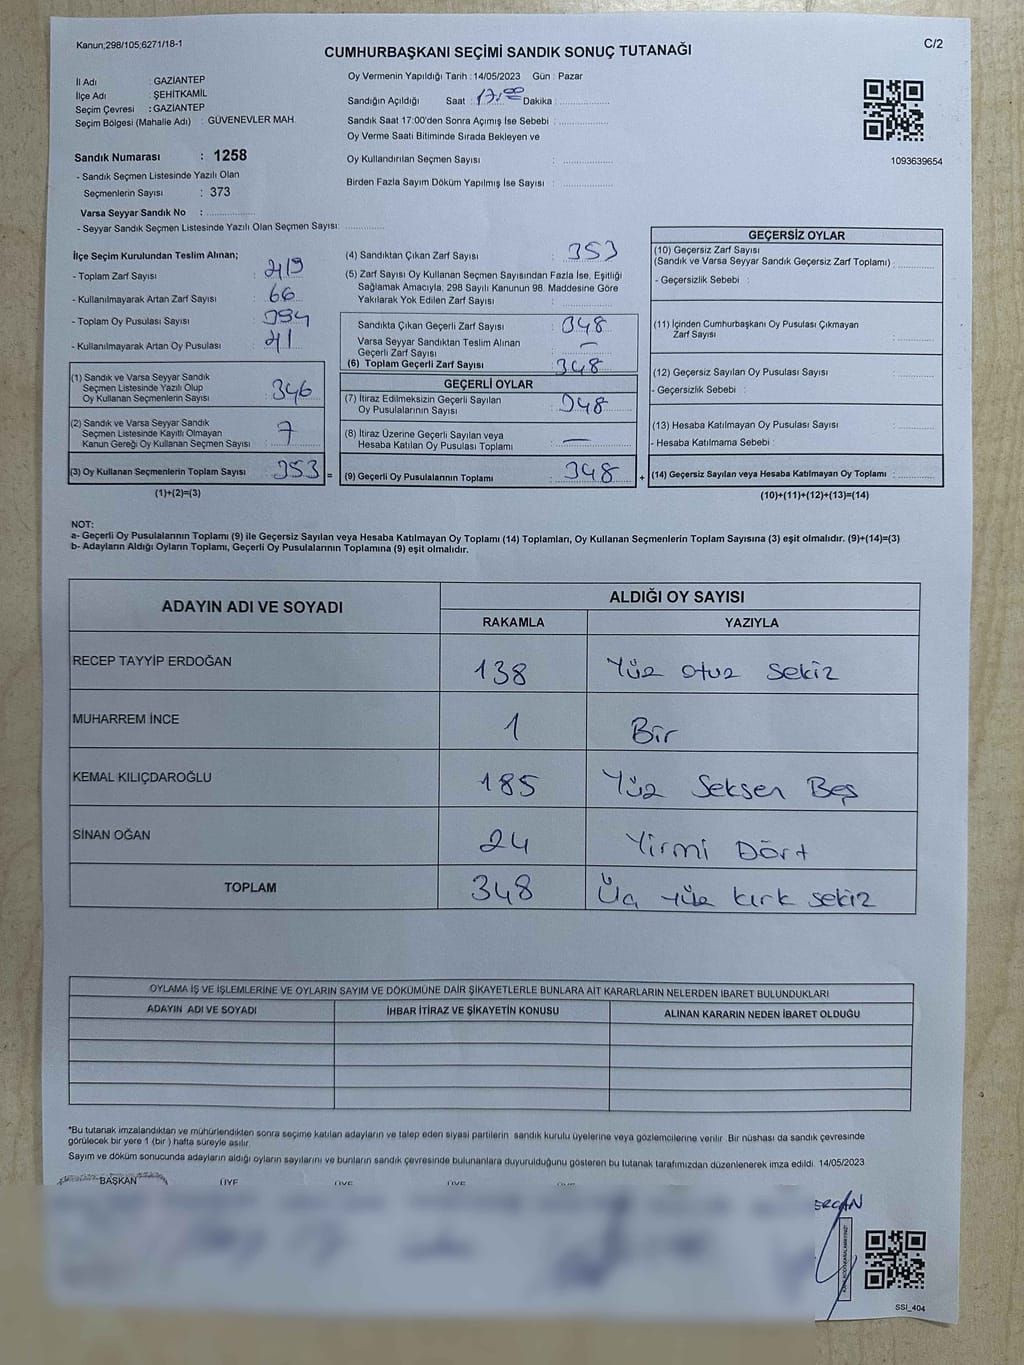 Kanun;298/105;6271/18-1
C/2
CUMHURBAŞKANI SEÇİMİ SANDIK SONUÇ TUTANAĞI
İl Adı : GAZİANTEP
İlçe Adı : ŞEHİTKAMİL
Seçim Çevresi : GAZİANTEP
Seçim Bölgesi (Mahalle Adı) : GÜVENEVLER MAH.
Sandık Numarası : 1258
- Sandık Seçmen Listesinde Yazılı Olan
Seçmenlerin Sayısı : 373
Varsa Seyyar Sandık No :
- Seyyar Sandık Seçmen Listesinde Yazılı Olan Seçmen Sayısı:
Oy Vermenin Yapıldığı Tarih : 14/05/2023 Gün : Pazar
Sandığın Açıldığı Saat : 17.00 Dakika :
Sandık Saat 17:00'den Sonra Açımış İse Sebebi :
Oy Verme Saati Bitiminde Sırada Bekleyen ve
Oy Kullandırılan Seçmen Sayısı :
Birden Fazla Sayım Döküm Yapılmış İse Sayısı :
1093639654
İlçe Seçim Kurulundan Teslim Alınan;
- Toplam Zarf Sayısı : 419
- Kullanılmayarak Artan Zarf Sayısı : 66
- Toplam Oy Pusulası Sayısı : 394
- Kullanılmayarak Artan Oy Pusulası : 41
(1) Sandık ve Varsa Seyyar Sandık
Seçmen Listesinde Yazılı Olup
Oy Kullanan Seçmenlerin Sayısı : 346
(2) Sandık ve Varsa Seyyar Sandık
Seçmen Listesinde Kayıtlı Olmayan
Kanun Gereği Oy Kullanan Seçmen Sayısı : 7
(3) Oy Kullanan Seçmenlerin Toplam Sayısı : 353 =
(1)+(2)=(3)
(4) Sandıktan Çıkan Zarf Sayısı : 353
(5) Zarf Sayısı Oy Kullanan Seçmen Sayısından Fazla İse, Eşitliği
Sağlamak Amacıyla; 298 Sayılı Kanunun 98. Maddesine Göre
Yakılarak Yok Edilen Zarf Sayısı :
Sandıkta Çıkan Geçerli Zarf Sayısı : 348
Varsa Seyyar Sandıktan Teslim Alınan
Geçerli Zarf Sayısı : —
(6) Toplam Geçerli Zarf Sayısı : 348
GEÇERLİ OYLAR
(7) İtiraz Edilmeksizin Geçerli Sayılan
Oy Pusulalarının Sayısı : 348
(8) İtiraz Üzerine Geçerli Sayılan veya
Hesaba Katılan Oy Pusulası Toplamı : —
(9) Geçerli Oy Pusulalarının Toplamı : 348 +
GEÇERSİZ OYLAR
(10) Geçersiz Zarf Sayısı
(Sandık ve Varsa Seyyar Sandık Geçersiz Zarf Toplamı) :
- Geçersizlik Sebebi :
(11) İçinden Cumhurbaşkanı Oy Pusulası Çıkmayan
Zarf Sayısı :
(12) Geçersiz Sayılan Oy Pusulası Sayısı :
- Geçersizlik Sebebi :
(13) Hesaba Katılmayan Oy Pusulası Sayısı :
- Hesaba Katılmama Sebebi :
(14) Geçersiz Sayılan veya Hesaba Katılmayan Oy Toplamı :
(10)+(11)+(12)+(13)=(14)
NOT:
a- Geçerli Oy Pusulalarının Toplamı (9) ile Geçersiz Sayılan veya Hesaba Katılmayan Oy Toplamı (14) Toplamları, Oy Kullanan Seçmenlerin Toplam Sayısına (3) eşit olmalıdır. (9)+(14)=(3)
b- Adayların Aldığı Oyların Toplamı, Geçerli Oy Pusulalarının Toplamına (9) eşit olmalıdır.
ADAYIN ADI VE SOYADI ALDIĞI OY SAYISI
RAKAMLA YAZIYLA
RECEP TAYYİP ERDOĞAN 138 Yüz otuz sekiz
MUHARREM İNCE 1 Bir
KEMAL KILIÇDAROĞLU 185 Yüz Seksen Beş
SİNAN OĞAN 24 Yirmi Dört
TOPLAM 348 Üç yüz kırk sekiz
OYLAMA İŞ VE İŞLEMLERİNE VE OYLARIN SAYIM VE DÖKÜMÜNE DAİR ŞİKAYETLERLE BUNLARA AİT KARARLARIN NELERDEN İBARET BULUNDUKLARI
ADAYIN ADI VE SOYADI İHBAR İTİRAZ VE ŞİKAYETİN KONUSU ALINAN KARARIN NEDEN İBARET OLDUĞU
*Bu tutanak imzalandıktan ve mühürlendikten sonra seçime katılan adayların ve talep eden siyasi partilerin sandık kurulu üyelerine veya gözlemcilerine verilir. Bir nüshası da sandık çevresinde
görülecek bir yere 1 (bir ) hafta süreyle asılır.
Sayım ve döküm sonucunda adayların aldığı oyların sayılarını ve bunların sandık çevresinde bulunanlara duyurulduğunu gösteren bu tutanak tarafımızdan düzenlenerek imza edildi. 14/05/2023
BAŞKAN ÜYE ÜYE ÜYE ÜYE
ERCAN
SSI_404